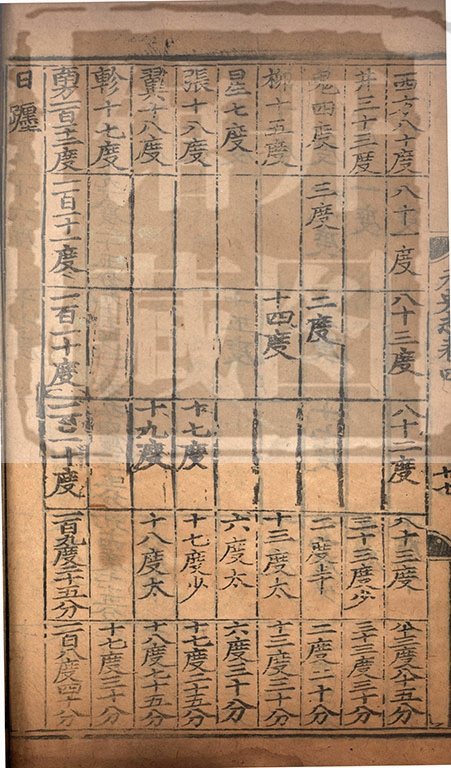 元史志卷四
十七
西方八十度 八十一度 八十三度 八十二度 八十三度 八十三度八十五分
井三十三度 三十三度少 三十三度三十分
鬼四度 三度 三度 二度半 二度二十分
柳十五度 十四度 十三度太 十三度三十分
星七度 六度太 六度三十分
張十八度 十七度 十七度少 十七度二十五分
翼十八度 十九度 十八度太 十八度七十五分
軫十七度 十七度三十分
南方一百一十二度 一百一十一度 一百一十度 一百二十度 一百九度二十五分 一百八度四十分
日躔